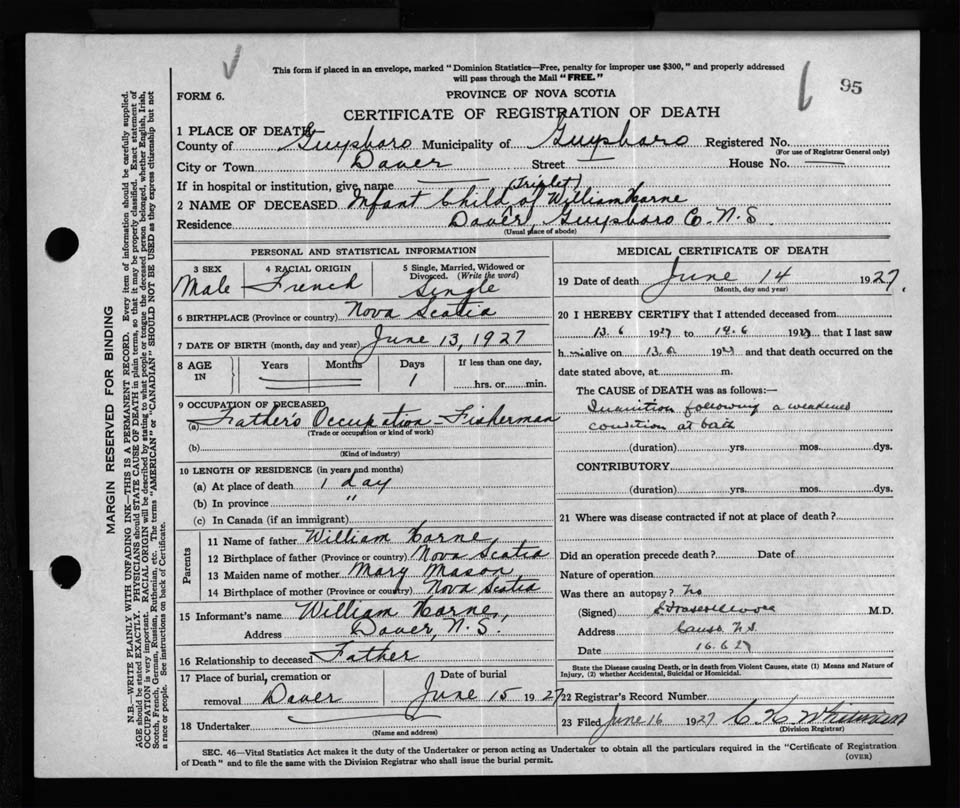 This form if placed in an envelope, marked "Dominion Statistics—Free, penalty for improper use $300," and properly addressed
will pass through the Mail "FREE."
95
FORM 6.
PROVINCE OF NOVA SCOTIA
CERTIFICATE OF REGISTRATION OF DEATH
1 PLACE OF DEATH—
County of Guysboro Municipality of Guysboro Registered No.
(For use of Registrar General only)
City or Town Dover Street House No.
If in hospital or institution, give name
(Triplet)
2 NAME OF DECEASED Infant Child of William Horne
Residence Dover, Guysboro Co. N.S
(Usual place of abode)
PERSONAL AND STATISTICAL INFORMATION
3 SEX
Male
4 RACIAL ORIGIN
French
5 Single, Married, Widowed or
Divorced. (Write the word)
Single
6 BIRTHPLACE (Province or country) Nova Scotia
7 DATE OF BIRTH (month, day and year) June 13, 1927
8 AGE
IN
Years
Months
Days
1
If less than one day,
hrs. or min.
9 OCCUPATION OF DECEASED
(a) Father's Occupation - Fisherman
(Trade or occupation or kind of work)
(b)
(Kind of industry)
10 LENGTH OF RESIDENCE (in years and months)
(a) At place of death 1 day
(b) In province "
(c) In Canada (if an immigrant)
Parents
11 Name of father William Horne
12 Birthplace of father (Province or country) Nova Scotia
13 Maiden name of mother Mary Mason
14 Birthplace of mother (Province or country) Nova Scotia
15 Informant's name William Horne,
Address Dover, N.S.
16 Relationship to deceased Father
17 Place of burial, cremation or
removal Dover
Date of burial
June 15 1927
18 Undertaker
(Name and address)
MEDICAL CERTIFICATE OF DEATH
19 Date of death June 14 1927.
(Month, day and year)
20 I HEREBY CERTIFY that I attended deceased from
13.6 1927 to 14.6 1927 that I last saw
h im alive on 13.6 1927 and that death occurred on the
date stated above, at m.
The CAUSE of DEATH was as follows:—
Inanition following a weakened
condition at birth
(duration) yrs. mos. dys.
CONTRIBUTORY
(duration) yrs. mos. dys.
21 Where was disease contracted if not at place of death?
Did an operation precede death? Date of
Nature of operation
Was there an autopsy? No
(Signed) M.D.
Address Canso N.S.
Date 16.6.27
State the Disease causing Death, or in death from Violent Causes, state (1) Means and Nature of
Injury, (2) whether Accidental, Suicidal or Homicidal.
22 Registrar's Record Number
23 Filed June 16 1927 C K Whitman
(Division Registrar)
SEC. 46—Vital Statistics Act makes it the duty of the Undertaker or person acting as Undertaker to obtain all the particulars required in the "Certificate of Registration
of Death" and to file the same with the Division Registrar who shall issue the burial permit.
(OVER)
MARGIN RESERVED FOR BINDING
N.B.—WRITE PLAINLY WITH UNFADING INK—THIS IS A PERMANENT RECORD. Every item of information should be carefully supplied.
AGE should be stated EXACTLY. PHYSICIANS should STATE CAUSE OF DEATH in plain terms, so that it may be properly classified. Exact statement of
OCCUPATION is very important. RACIAL ORIGIN will be described by stating to what people or tongue the deceased person belonged, whether English, Irish,
Scotch, French, German, Russian, Ruthenian, etc. The terms "AMERICAN" or "CANADIAN" SHOULD NOT BE USED as they express citizenship but not
a race or people. See instructions on back of Certificate.